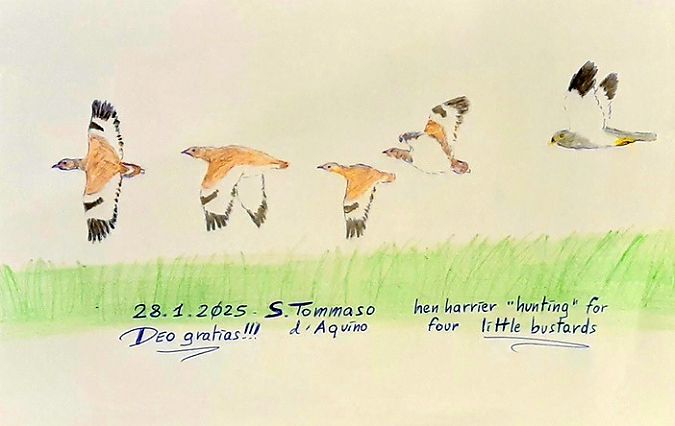 28.1.2025 - S. Tommaso
d'Aquino
Deo gratias!!!
hen harrier "hunting" for
four little bustards